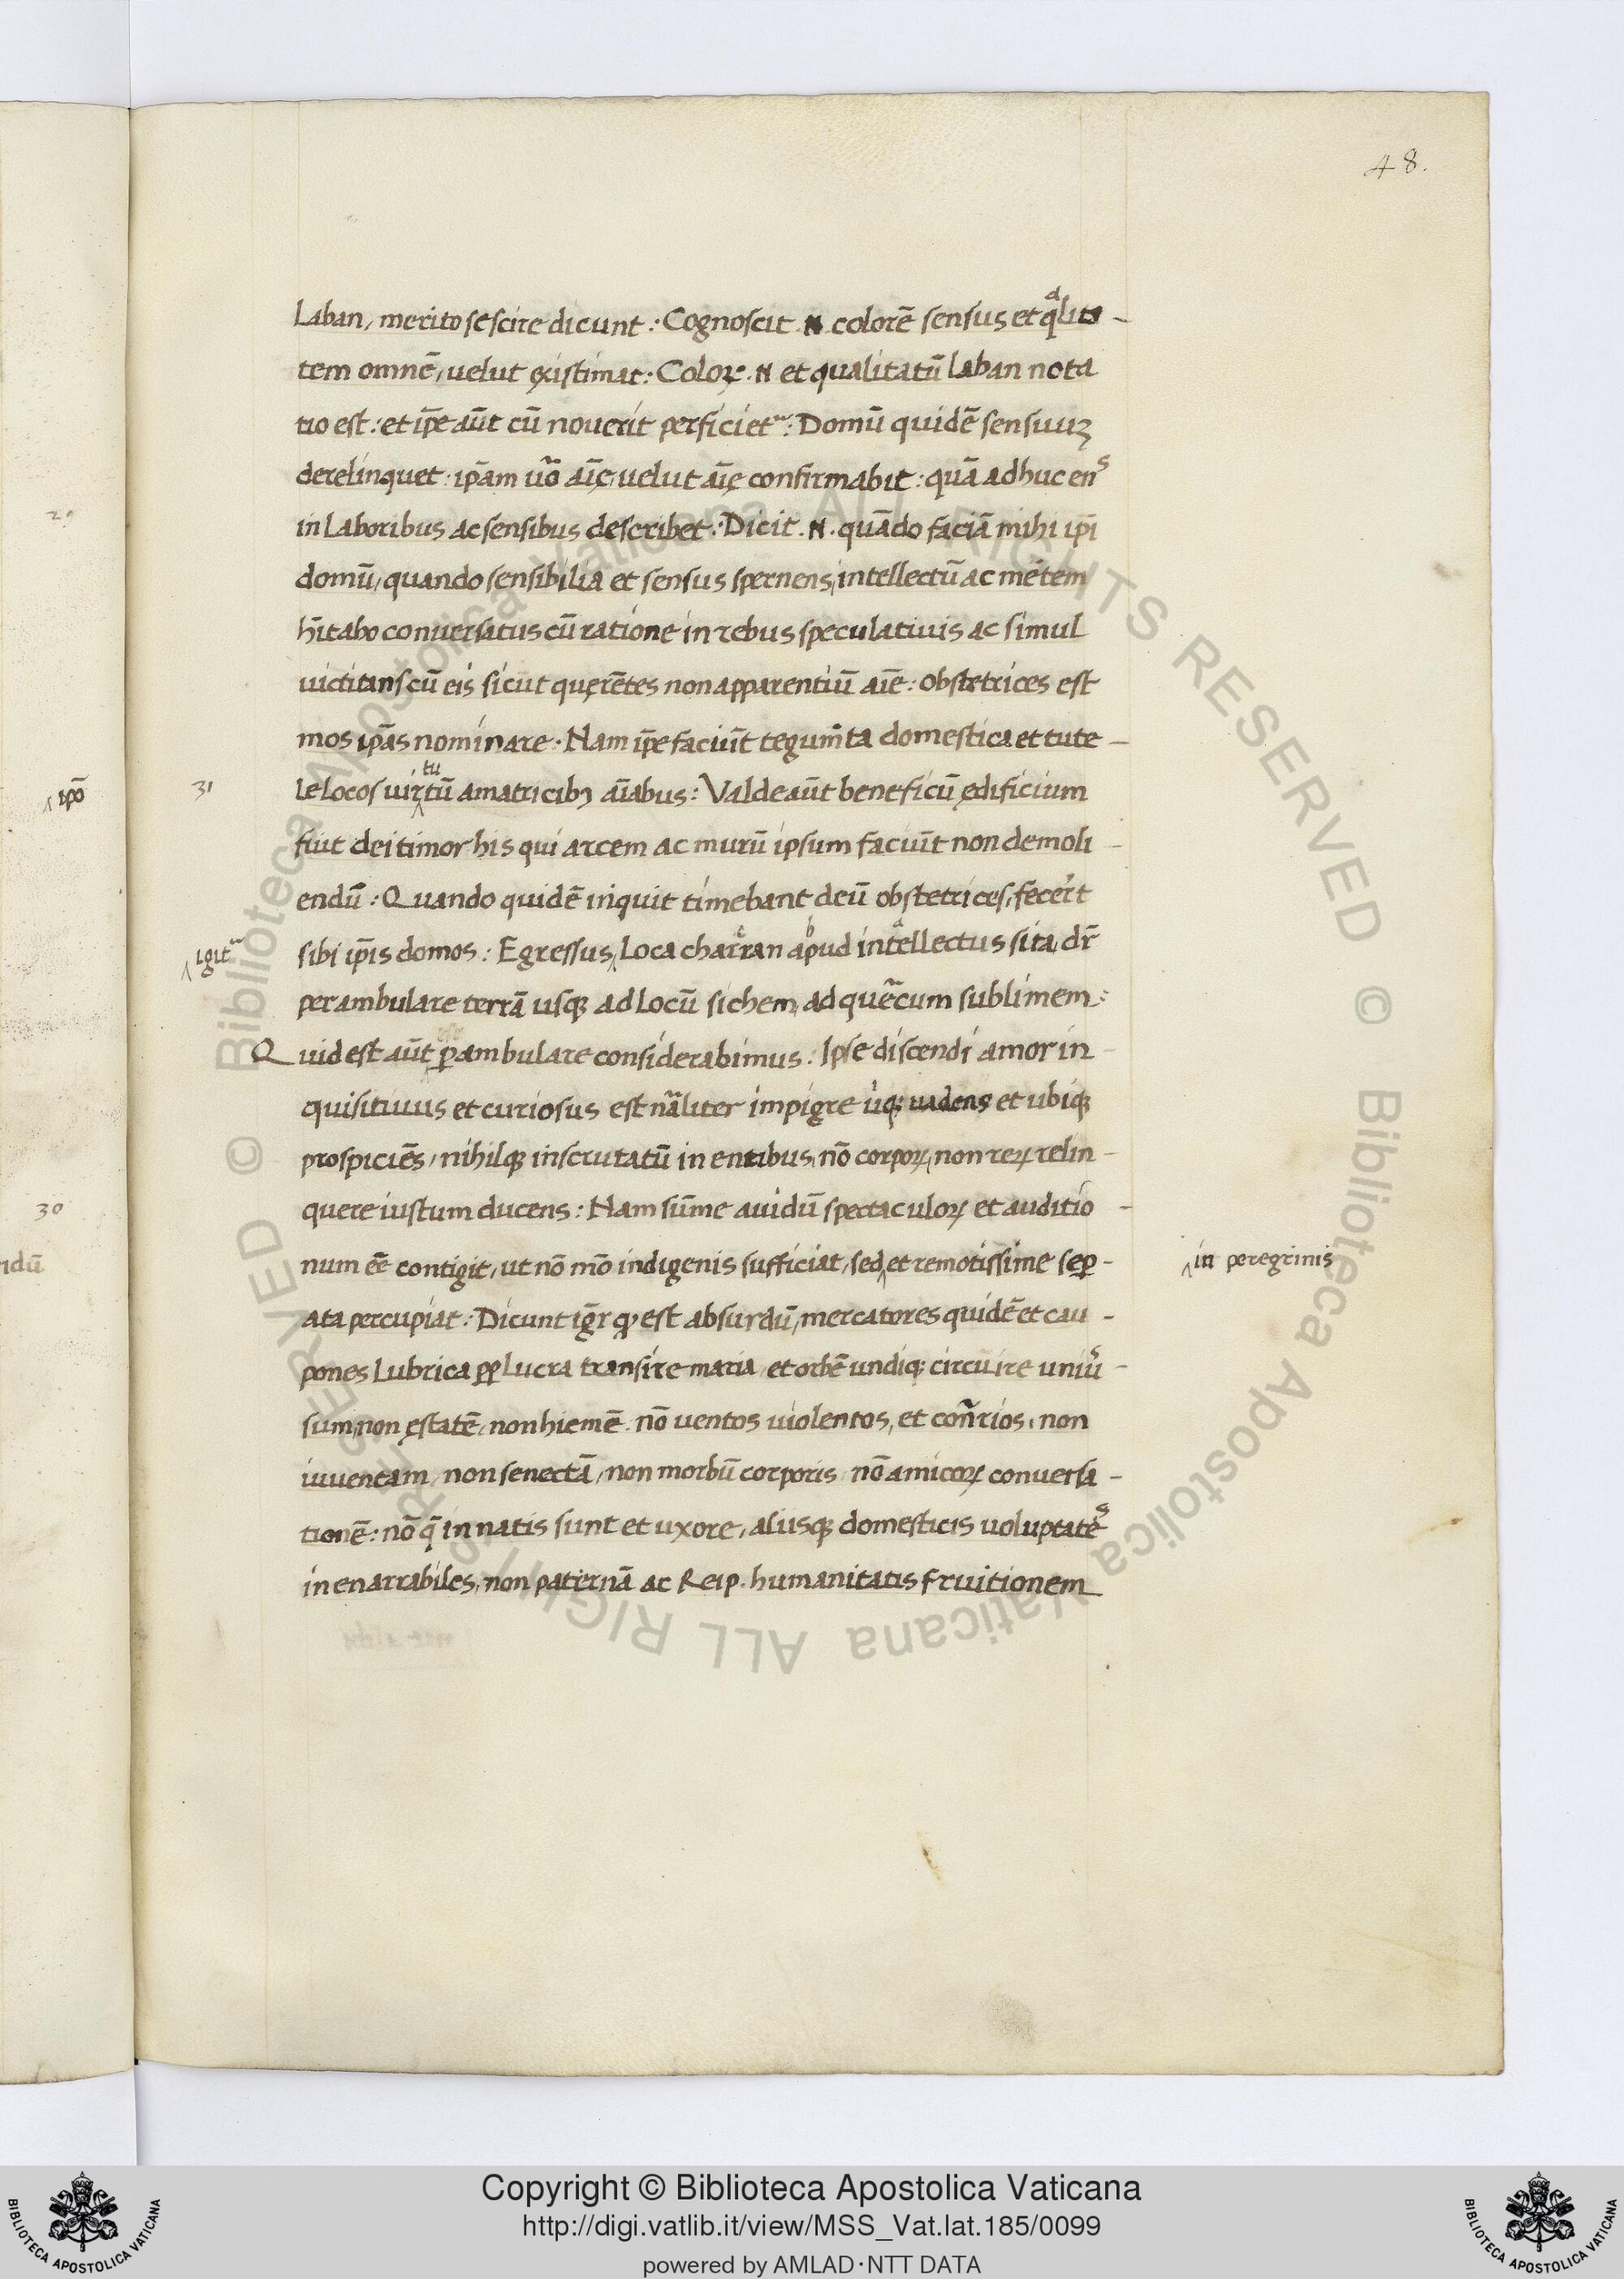 48.
Laban, merito se scire dicunt: Cognoscit .N. colorē sensus et qᵃlita-
tem omnē, velut existimat: Coloꝝ .N. et qualitatū laban nota
tio est: et ip̄e aūt cū noverit perficietᵘʳ: Domū quidē sensuuꝫ
derelinquet: ip̄am ūo aīę, velut aīę confirmabit: quā adhuc enˢ
in Laboribus ac sensibus describet: Dicit .N. quādo faciā mihi ip̄i
domū, quando sensibilia et sensus spernens, intellectū ac mētem
hītabo conversatus cū ratione in rebus speculativis ac simul
victitans cū eis sicut quęrētes non apparentiū aīe: obstetrices est
mos ip̄as nominare: Nam ip̄e faciūt tegum̄ta domestica et tute-
31
le locos vir^tutū amatricibꝫ aīabus: Valde aūt beneficū ędificium
fiut dei timor his qui arcem ac murū ipsum faciūt non demoli-
endū: Quando quidē inquit timebant deū obstetrices, fecer̄t
^igitᵘʳ
sibi ip̄is domos: Egressus^ Loca charran apud intellectus sita, dr̄
perambulare terrā usqꝫ ad locū sichem, ad quercum sublimem:
Quid est aūt ꝑambulare considerabimus: Ipse discendi amor in-
quisitivus et curiosus est nāliter impigre ūqꝫ vadens et ubiqꝫ
prospiciēs, nihilqꝫ inscrutatū in entibus, nō corpoꝝ, non reꝝ relin-
quere iustum ducens: Nam sūme avidū spectaculoꝝ et auditio-
num eē contigit, ut nō mō indigenis sufficiat, sed^ et remotissime seꝑ-
^in peregrinis
ata percupiat: Dicunt iḡr ꝙ est absurdū, mercatores quidē et cau-
pones Lubrica ꝓꝑ lucra transire maria, et orbē undiqꝫ circuire univˢ-
sum, non ęstatē, non hiemē, nō ventos violentos, et cōn̄rios, non
iuventam, non senectā, non morbū corporis, nō amicoꝝ conversa-
tionē: nō q̄ in natis sunt et uxore, aliisqꝫ domesticis voluptatēˢ
inenarrabiles, non paternā ac Reip. humanitatis fruitionem
^ipō
29
30
ndū
Copyright © Biblioteca Apostolica Vaticana
http://digi.vatlib.it/view/MSS_Vat.lat.185/0099
powered by AMLAD·NTT DATA
BIBLIOTECA APOSTOLICA VATICANA
BIBLIOTECA APOSTOLICA VATICANA
© Biblioteca Apostolica Vaticana ALL RIGHTS RESERVED © Biblioteca Apostolica Vaticana ALL RIGHTS RESERVED